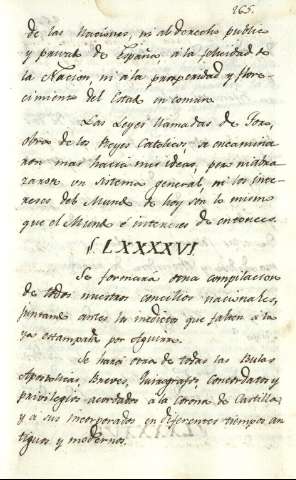 265.
de las Naciones, ni al derecho publico
y privado de España, á la felicidad de
la Nacion, ni á la prosperidad y flore-
cimiento del Estado en comun.
Las Leyes llamadas de Toro,
obra de los Reyes Catolicos, se encamina
ron mas hacia mis ideas, pero no abra
zaron un sistema general, ni los inte-
reses del Mundo de hoy son lo mismo
que el Mundo é intereses de entonces.
§. LXXXXVI
Se formará otra compilacion
de todos nuestros concilios nacionales,
juntando antes los ineditos que falten á la
ya estampada por Aguirre.
Se hará otra de todas las Bulas
Apostolicas, Breves, Concordatos y
privilegios acordados á la Corona de Castilla,
y a sus incorporados en diferentes tiempos an
tiguos y modernos.